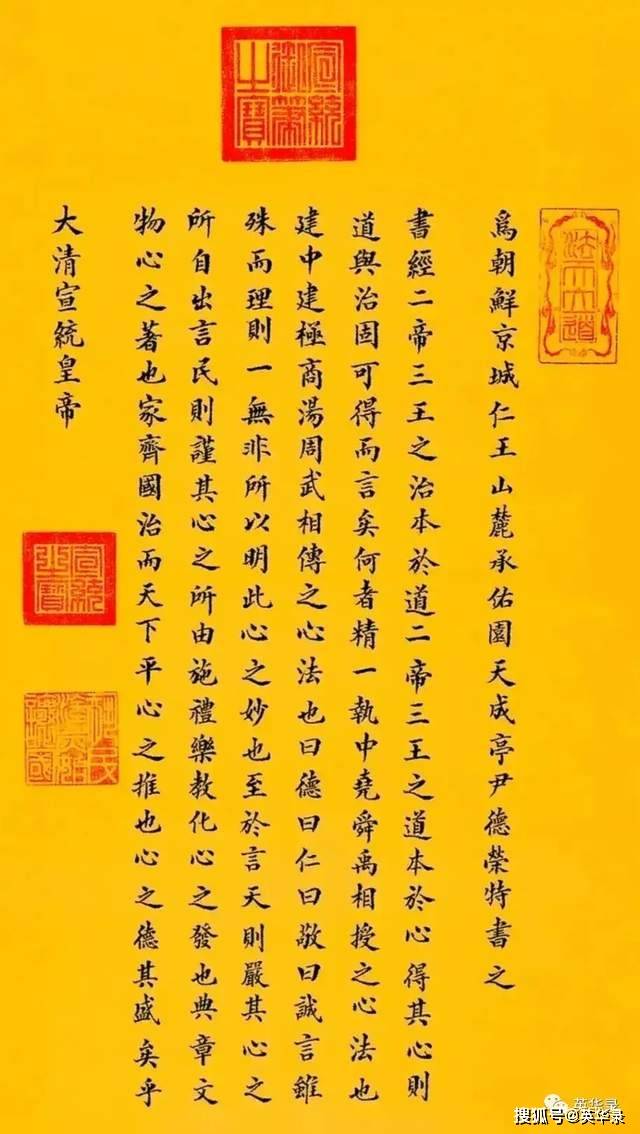 宣統御筆之寶
爲朝鮮京城仁王山麓承佑園天成亭尹德榮特書之
書經二帝三王之治本於道二帝三王之道本於心得其心則
道與治固可得而言矣何者精一執中堯舜禹相授之心法也
建中建極商湯周武相傳之心法也曰德曰仁曰敬曰誠言雖
殊而理則一無非所以明此心之妙也至於言天則嚴其心之
所自出言民則謹其心之所由施禮樂教化心之發也典章文
物心之著也家齊國治而天下平心之推也心之德其盛矣乎
大清宣統皇帝
宣統之寶
英华录
搜狐号@英华录